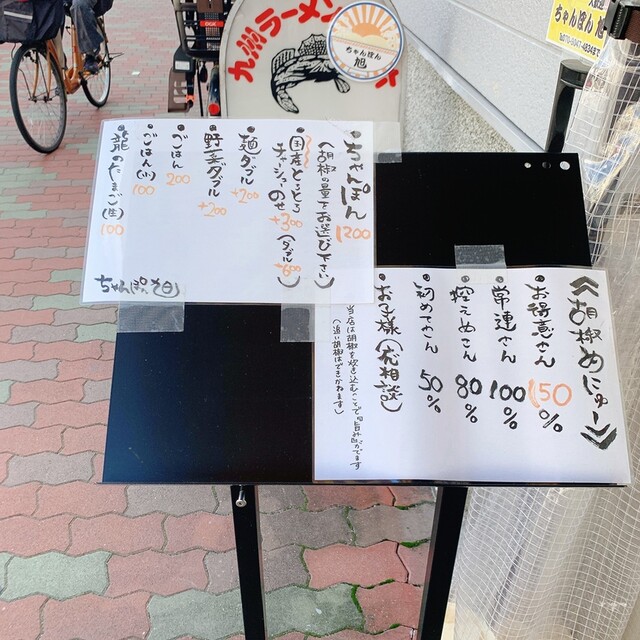 九州ラーメン
ちゃんぽん
旭
ちゃんぽん 旭
・ちゃんぽん 1200
(胡椒の量をお選び下さい)
・国産とろとろチャーシューのせ +300 (ダブル +600)
・麺ダブル +200
・野菜ダブル +200
・ごはん 200
・ごはん(小) 100
のたまご(生) 100
ちゃんぽん 旭
≪胡椒めにゅー≫
・お得意さん 150%
・常連さん 100%
・控えめさん 80%
・初めてさん 50%
・お子様(応相談)
当店は胡椒を炊き込むことで旨みがでます
(追い胡椒はできかねます)